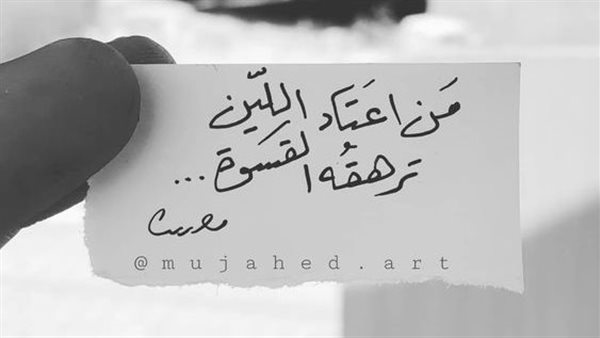 مَن اعتَاد اللّين
ترهقُه القسَوة ...
@mujahed.art